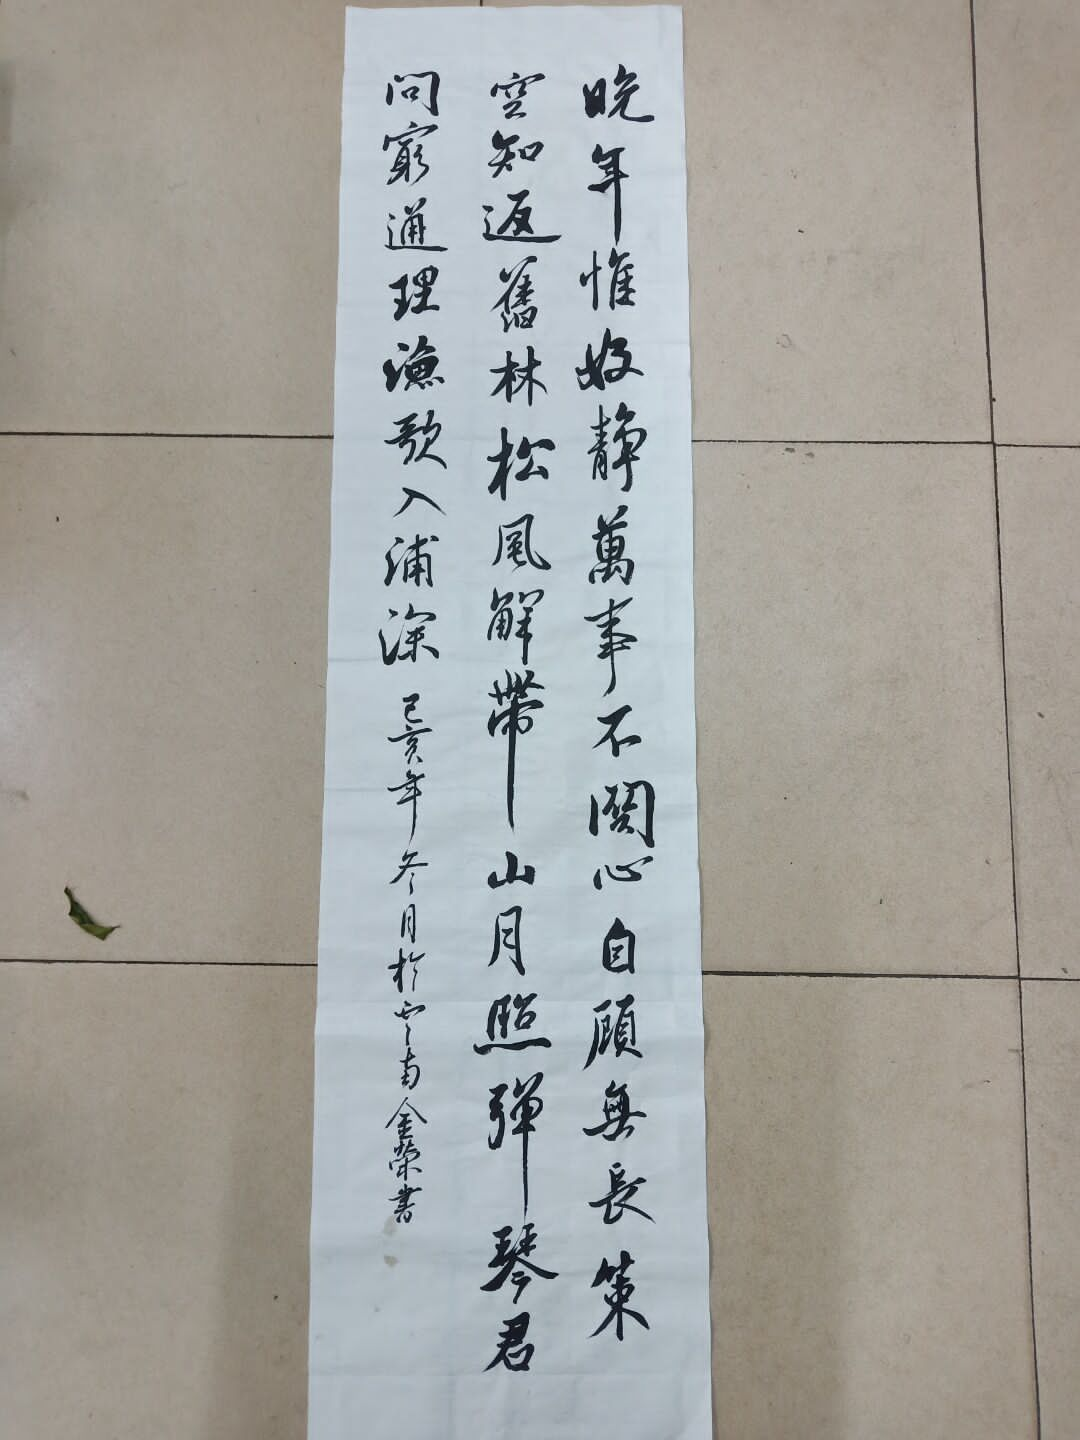 晚年惟好静萬事不関心自顧無長策
空知返舊林松風解帶山月照彈琴君
問窮通理漁歌入浦深
己亥年冬月於雲南金榮書